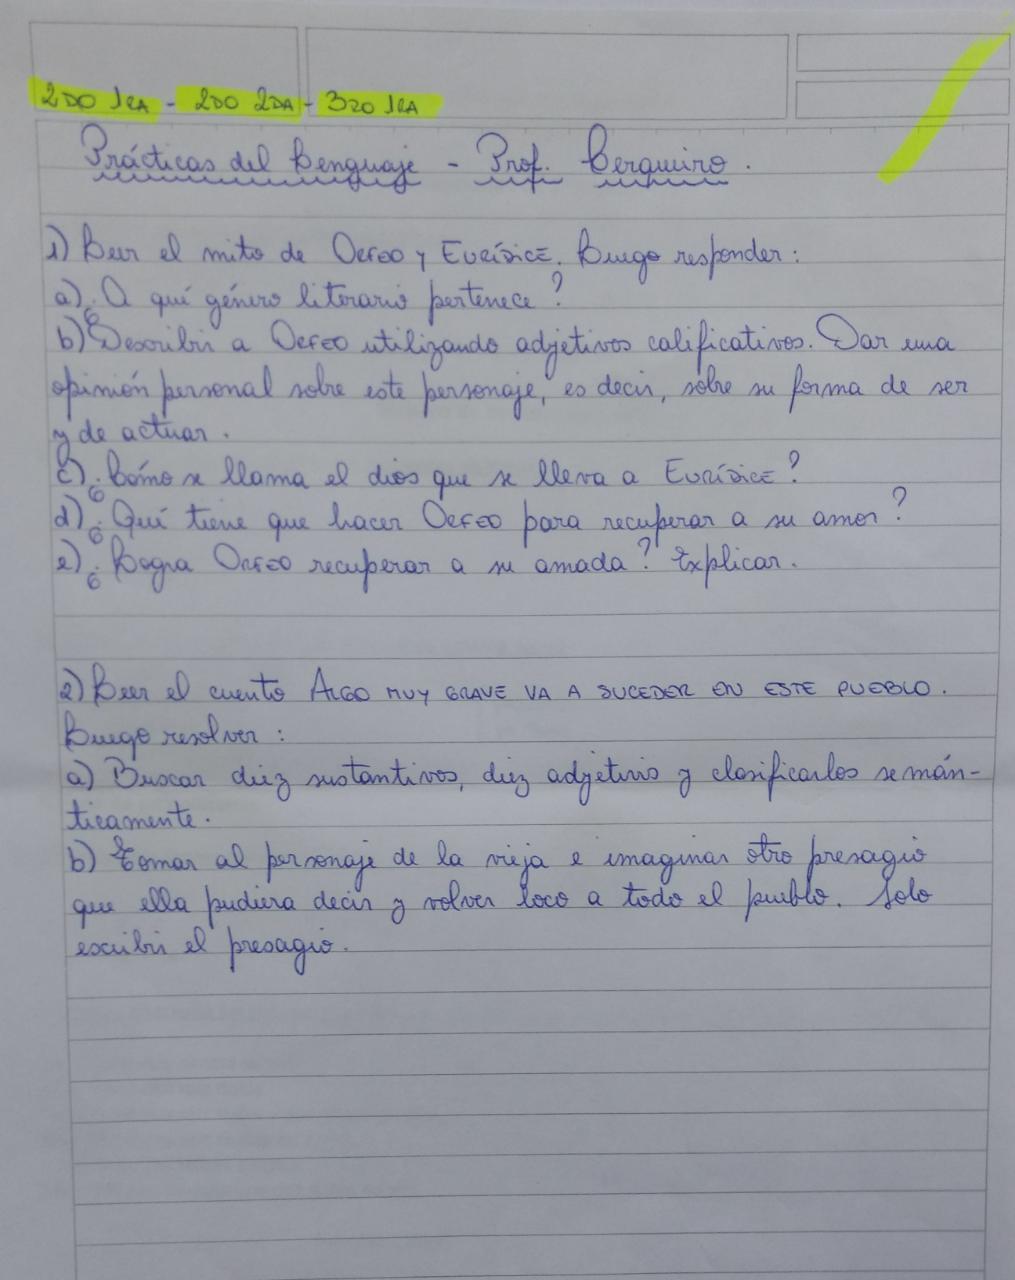 2DO 1RA - 2DO 2DA - 3RO 1RA
Prácticas del Lenguaje - Prof. Cerquiro.
1) Leer el mito de ORFEO Y EURÍDICE. Luego responder:
a) ¿A qué género literario pertenece?
b) Describir a ORFEO utilizando adjetivos calificativos. Dar una
opinión personal sobre este personaje, es decir, sobre su forma de ser
y de actuar.
c) ¿Cómo se llama el dios que se lleva a EURÍDICE?
d) ¿Qué tiene que hacer ORFEO para recuperar a su amor?
e) ¿Logra ORFEO recuperar a su amada? Explicar.
2) Leer el cuento ALGO MUY GRAVE VA A SUCEDER EN ESTE PUEBLO.
Luego resolver:
a) Buscar diez sustantivos, diez adjetivos y clasificarlos semán-
ticamente.
b) Tomar al personaje de la vieja e imaginar otro presagio
que ella pudiera decir y volver loco a todo el pueblo. Solo
escribir el presagio.